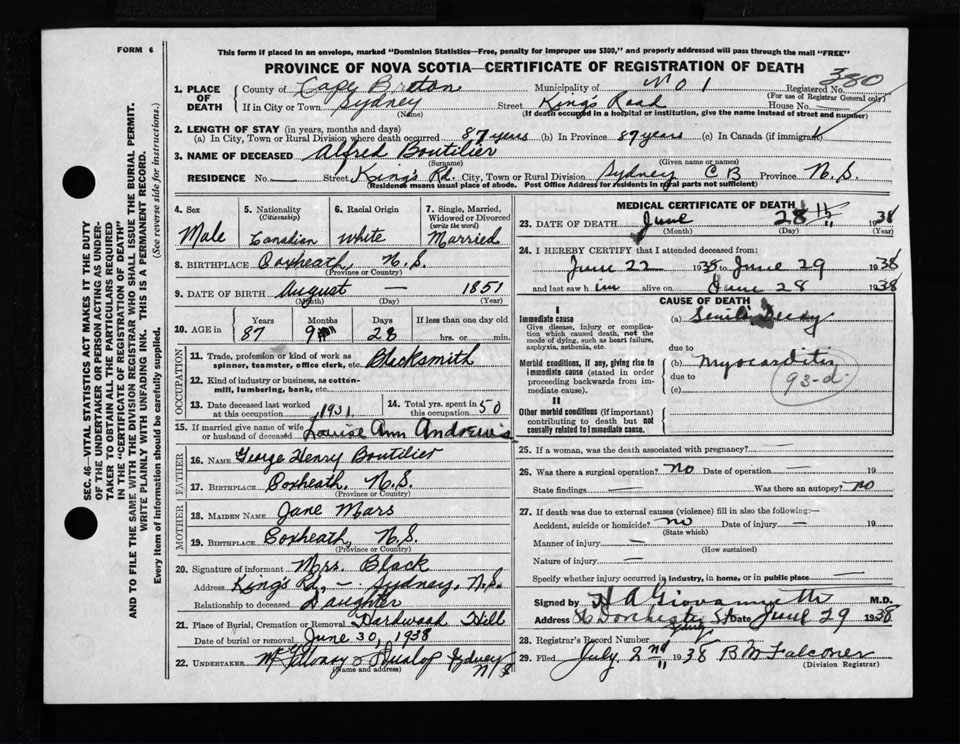 FORM 6
This form if placed in an envelope, marked "Dominion Statistics—Free, penalty for improper use $300," and properly addressed will pass through the mail "FREE"
PROVINCE OF NOVA SCOTIA—CERTIFICATE OF REGISTRATION OF DEATH
380
1. PLACE OF DEATH
County of Cape Breton Municipality of No 1 Registered No.
(For use of Registrar General only)
If in City or Town Sydney Street King's Road House No.
(Name) (If death occurred in a hospital or institution, give the name instead of street and number)
2. LENGTH OF STAY (in years, months and days)
(a) In City, Town or Rural Division where death occurred 87 years (b) In Province 87 years (c) In Canada (if immigrant)
3. NAME OF DECEASED Alfred Boutilier
(Surname) (Given name or names)
RESIDENCE No. — Street King's Rd. City, Town or Rural Division Sydney C B Province N.S.
(Residence means usual place of abode. Post Office Address for residents in rural parts not sufficient)
4. Sex Male
5. Nationality (Citizenship) Canadian
6. Racial Origin White
7. Single, Married, Widowed or Divorced (write the word) Married
8. BIRTHPLACE Coxheath N.S.
(Province or Country)
9. DATE OF BIRTH August — 1851
(Month) (Day) (Year)
10. AGE in Years Months Days If less than one day old
87 9 28 hrs. or min.
OCCUPATION
11. Trade, profession or kind of work as spinner, teamster, office clerk, etc. Blacksmith
12. Kind of industry or business, as cotton-mill, lumbering, bank, etc.
13. Date deceased last worked at this occupation 1931
14. Total yrs. spent in this occupation 50
15. If married give name of wife or husband of deceased Louise Ann Andrews
FATHER
16. NAME George Henry Boutilier
17. BIRTHPLACE Coxheath, N.S.
(Province or Country)
MOTHER
18. MAIDEN NAME Jane Mars
19. BIRTHPLACE Coxheath, N.S.
(Province or Country)
20. Signature of informant Mrs. Black
Address King's Rd, — Sydney, N.S.
Relationship to deceased Daughter
21. Place of Burial, Cremation or Removal Hardwood Hill
Date of burial or removal June 30, 1938
22. UNDERTAKER Dunlop Sydney N S
(Name and address)
MEDICAL CERTIFICATE OF DEATH
23. DATE OF DEATH June 28th 1938
(Month) (Day) (Year)
24. I HEREBY CERTIFY that I attended deceased from:
June 22 1938 to June 29 1938
and last saw him alive on June 28 1938
CAUSE OF DEATH
I
Immediate cause
Give disease, injury or complication which caused death, not the mode of dying, such as heart failure, asphyxia, asthenia, etc.
(a) Senile Decay
due to
Morbid conditions, if any, giving rise to immediate cause (stated in order proceeding backwards from immediate cause).
(b) Myocarditis
due to
(c)
93-d
II
Other morbid conditions (if important) contributing to death but not causally related to immediate cause.
25. If a woman, was the death associated with pregnancy? —
26. Was there a surgical operation? No Date of operation — 19
State findings — Was there an autopsy? no
27. If death was due to external causes (violence) fill in also the following:—
Accident, suicide or homicide? no Date of injury — 19
(State which)
Manner of injury —
(How sustained)
Nature of injury —
Specify whether injury occurred in industry, in home, or in public place —
Signed by H A Giovannetti M.D.
Address Dorchester St Date June 29 1938
28. Registrar's Record Number
29. Filed July 2nd 1938 B M Falconer
(Division Registrar)
SEC. 46—VITAL STATISTICS ACT MAKES IT THE DUTY
OF THE UNDERTAKER OR PERSON ACTING AS UNDER-
TAKER TO OBTAIN ALL THE PARTICULARS REQUIRED
IN THE "CERTIFICATE OF REGISTRATION OF DEATH"
AND TO FILE THE SAME WITH THE DIVISION REGISTRAR WHO SHALL ISSUE THE BURIAL PERMIT.
WRITE PLAINLY WITH UNFADING INK. THIS IS A PERMANENT RECORD.
Every item of information should be carefully supplied. (See reverse side for instructions.)